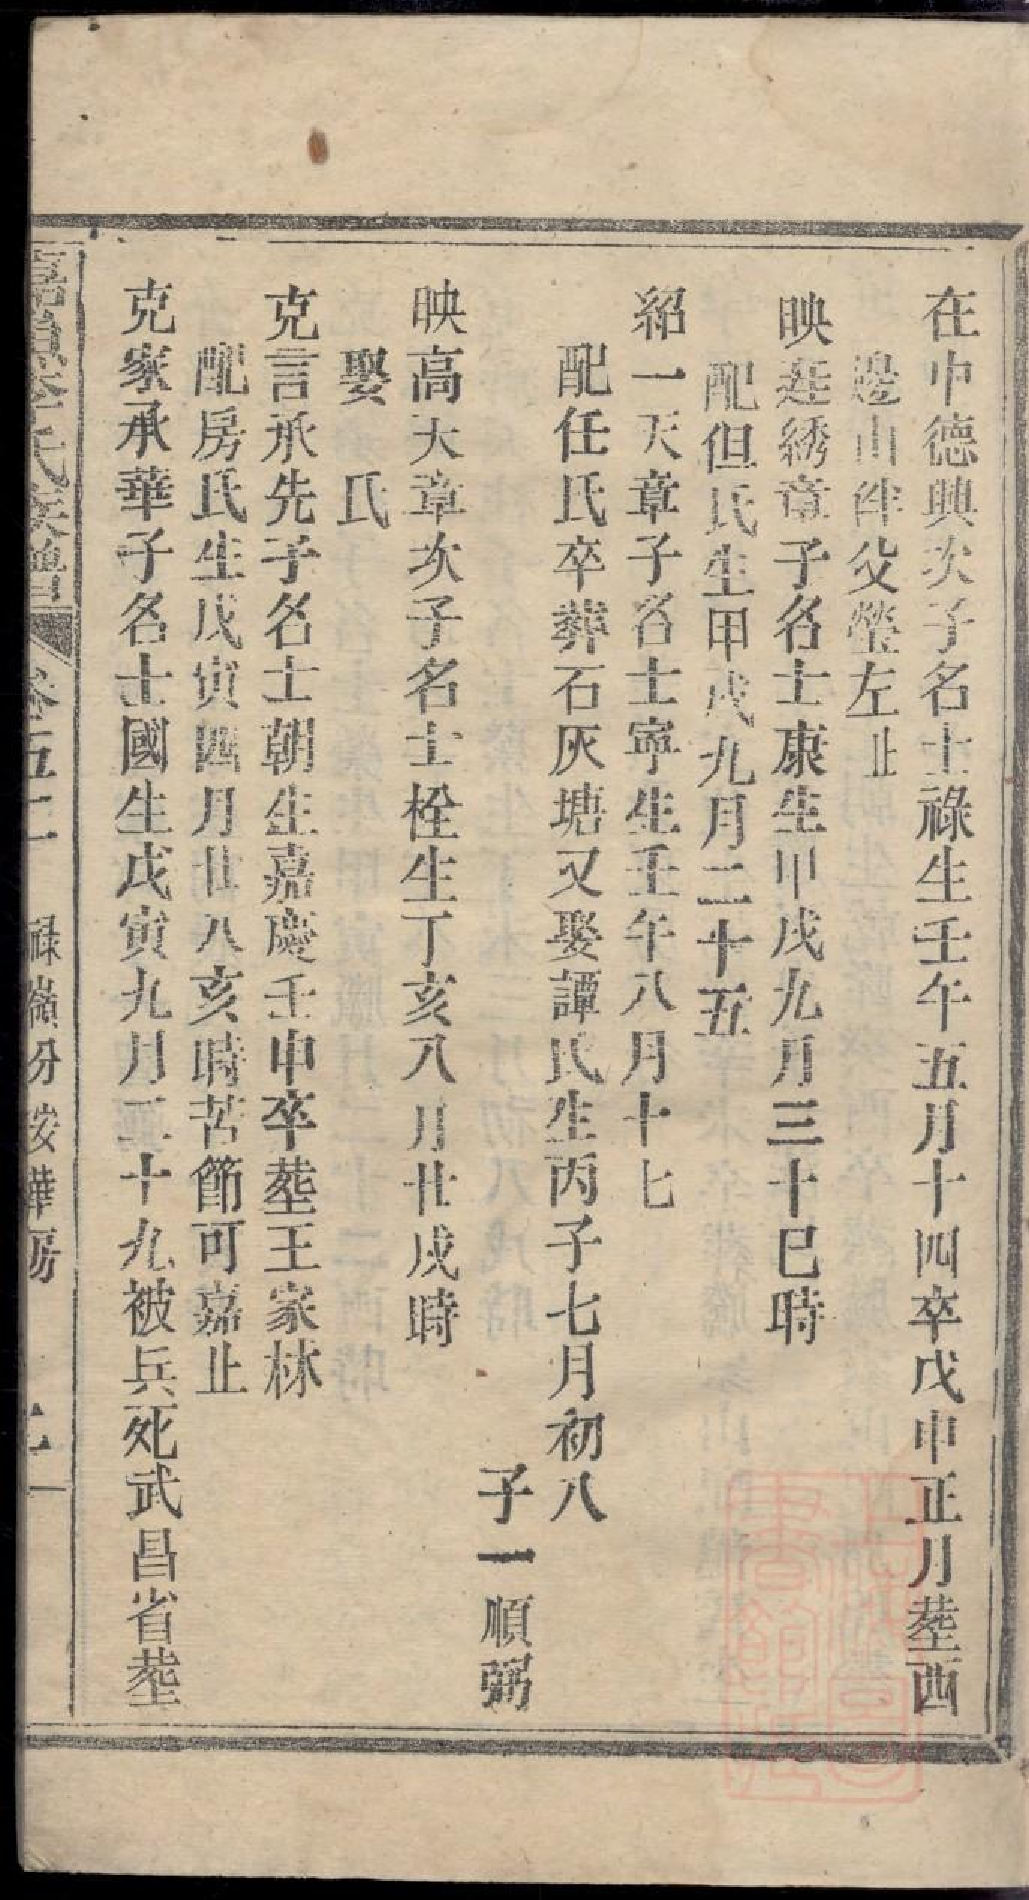 在中德興次子名士祿生壬午五月十四卒戊申正月塟西
邊山伴父塋左止
映莲綉章子名士康生甲戌九月三十巳時
配但氏生甲戌九月二十五
紹一天章子名士寧生壬午八月十七
配任氏卒葬石灰塘又娶譚氏生丙子七月初八
子一順弼
映高天章次子名士栓生丁亥八月廿戌時
娶　氏
克言承先子名士朝生嘉慶壬申卒塟王家林
配房氏生戊寅四月廿八亥時苦節可嘉止
克家承華子名士國生戊寅九月二十九被兵死武昌省塟
氏族譜
卷五二　祿嶺分　房